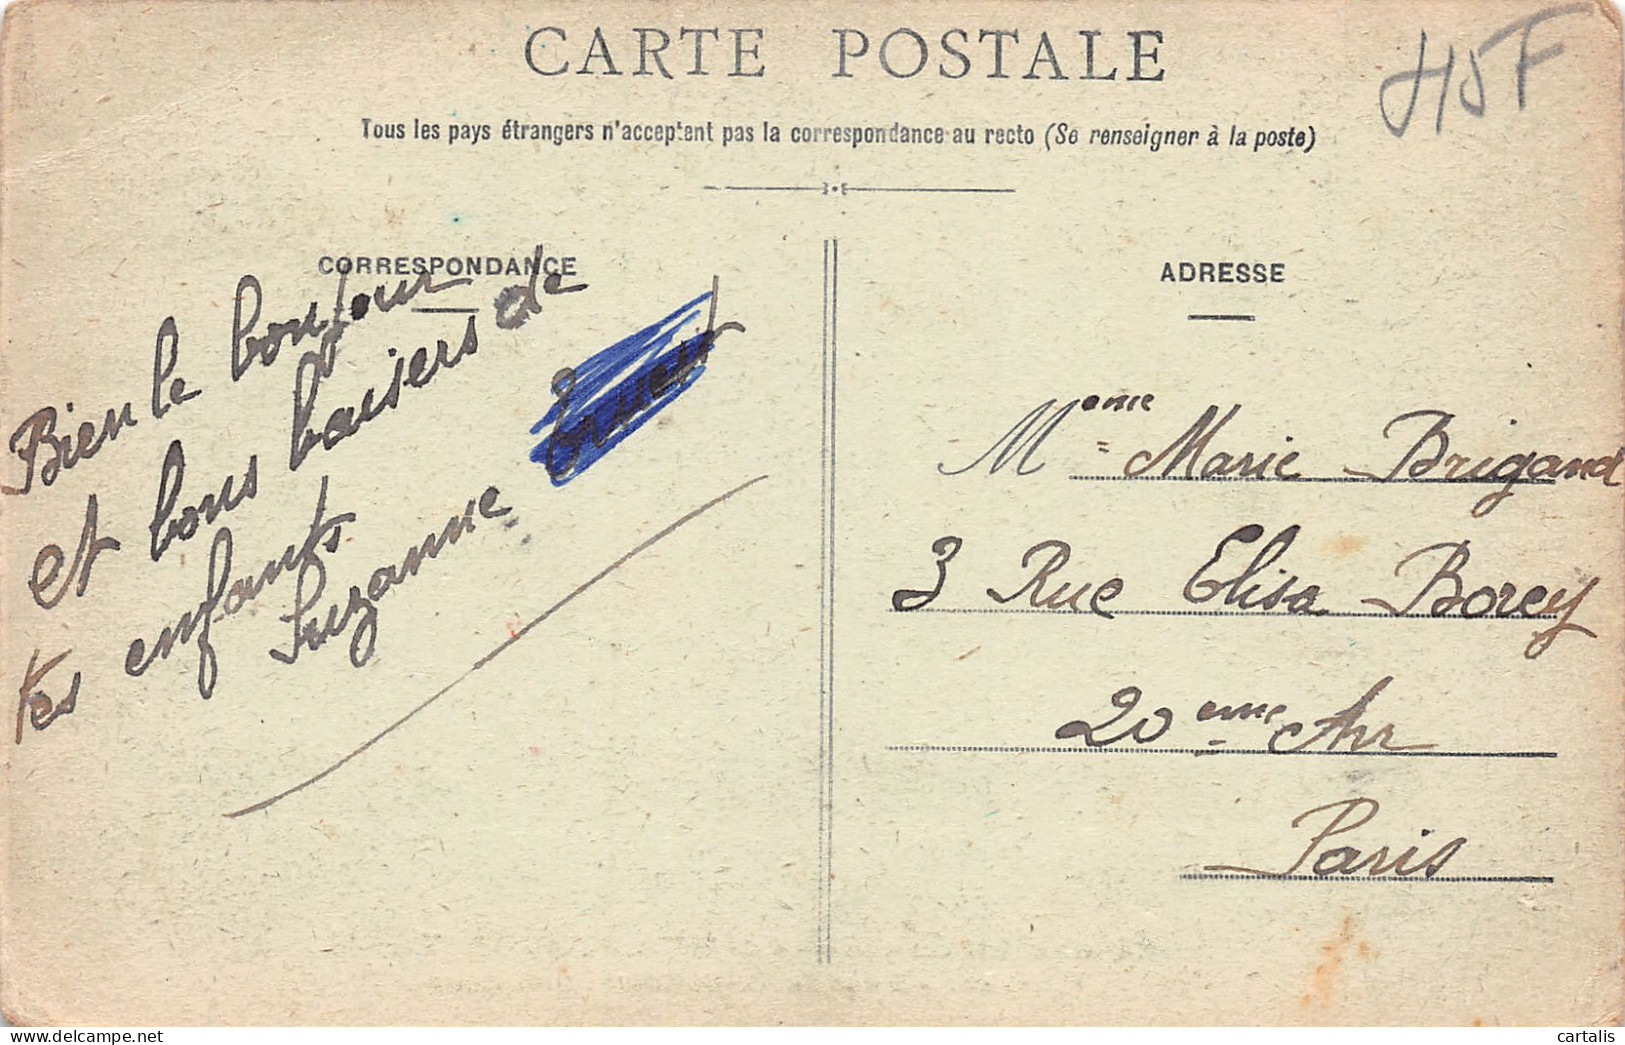 CARTE POSTALE
Tous les pays étrangers n'acceptent pas la correspondance au recto (Se renseigner à la poste)
CORRESPONDANCE
Bien le bonjour
et bons baisers de
tes enfants
Suzanne
ADRESSE
Mme Marie Brigand
3 Rue Elisa Borey
20eme Arr
Paris
cartalis